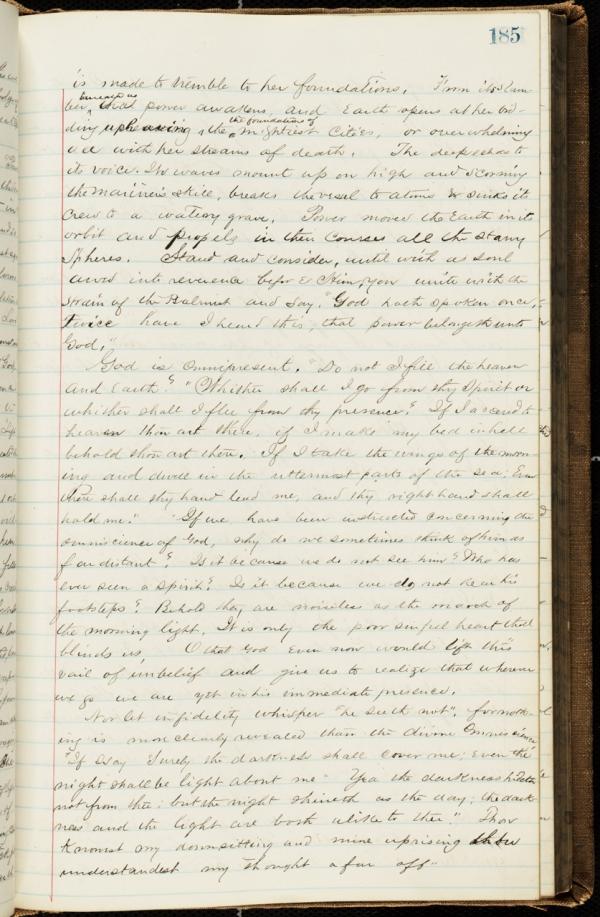 185
is made to tremble to her foundations. From its slum-
ber, that power awakens, and Earth opens at her bid-
ding upheaving the the foundations of mightiest Cities, or overwhelming
all with her streams of death. The deep echos to
its voice. Its waves mount up on high and scorning
the mariners skill, breaks the vessel to atoms & sinks its
crew to a watery grave. Power moves the Earth in its
orbit and propels in their courses all the starry
Spheres. Stand and consider, until with a soul
awed into reverence before Him, you unite with the
strain of the Psalmist and say, "God hath spoken once,
twice have I heard this, that power belongeth unto
God."
God is Omnipresent. "Do not I fill the heaven
and Earth?" "Whither shall I go from thy Spirit or
whither shall I flee from thy presence? If I ascend to
heaven thou art there, if I make my bed in hell
behold thou art there. If I take the wings of the morn-
ing and dwell in the uttermost parts of the sea: Even
there shall thy hand lead me, and thy right hand shall
hold me." If we have been instructed concerning the
omniscience of God, why do we sometimes think of him as
far distant? Is it because we do not see him? Who has
ever seen a Spirit? Is it because we do not hear his
footsteps? Behold they are noiseless as the march of
the morning light. It is only the poor sinful heart that
blinds us. O that God Even now would lift this
vail of unbelief and give us to realize that wherever
we go we are yet in his immediate presence.
Nor let infidelity whisper "he seeth not". for noth-
ing is more clearly revealed than the divine Omniscience
"If I say Surely the darkness shall cover me; even the
night shall be light about me" Yea the darkness hideth
not from thee: but the night shineth as the day; the dark-
ness and the light are both alike to thee." Thou
knowest my downsitting and mine uprising thou
understandest my thought afar off"